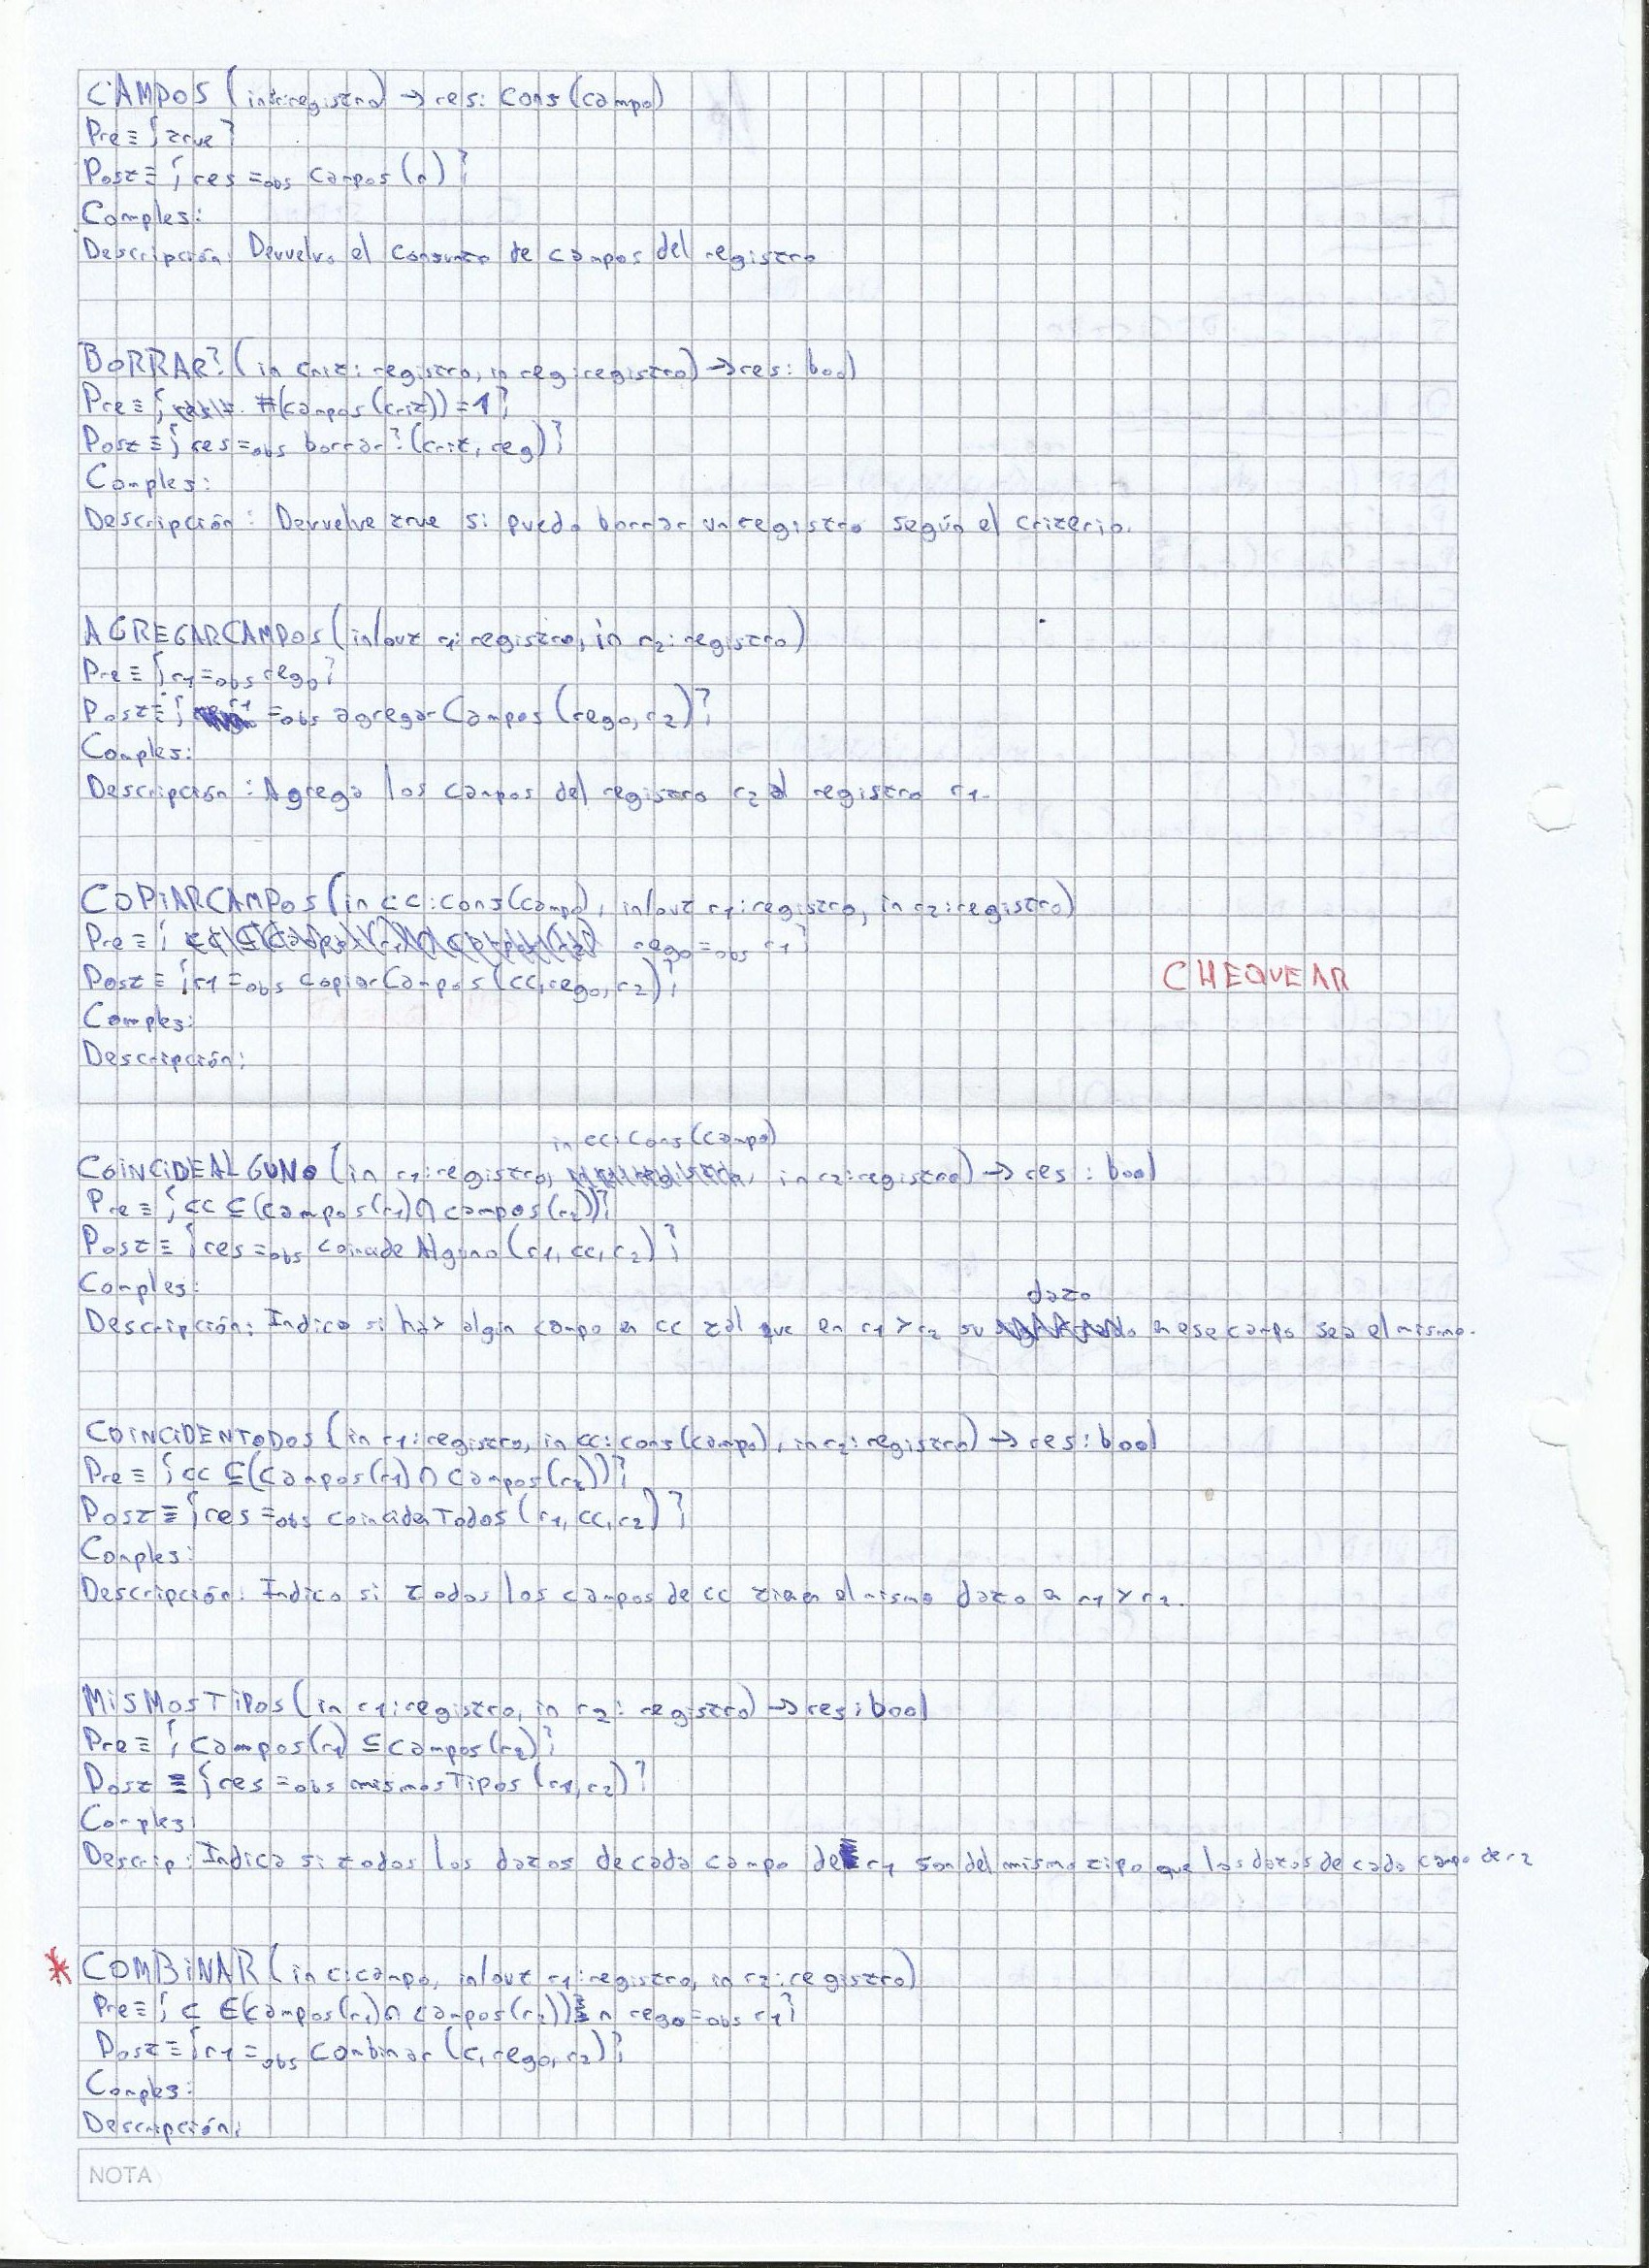 CAMPOS (in r: registro) → res: Cons(campo)
Pre ≡ { true }
Post ≡ { res =obs campos(r) }
Comples:
Descripción: Devuelve el conjunto de campos del registro
BORRAR? (in crit: registro, in reg: registro) → res: bool
Pre ≡ { #(campos(crit)) = 1 }
Post ≡ { res =obs borrar?(crit, reg) }
Comples:
Descripción: Devuelve true si puedo borrar un registro según el criterio.
AGREGARCAMPOS (in/out r1: registro, in r2: registro)
Pre ≡ { r1 =obs rego }
Post ≡ { r1 =obs agregarCampos (rego, r2) }
Comples:
Descripción: Agrega los campos del registro r2 al registro r1.
COPIARCAMPOS (in cc: cons(campo), in/out r1: registro, in r2: registro)
Pre ≡ { rego =obs r1 }
Post ≡ { r1 =obs copiarCampos (cc, rego, r2) }
CHEQUEAR
Comples:
Descripción:
in cc: Cons(campo)
COINCIDEALGUNO (in r1: registro, in r2: registro) → res: bool
Pre ≡ { cc ⊆ (campos(r1) ∩ campos(r2)) }
Post ≡ { res =obs coincideAlguno (r1, cc, r2) }
Comples:
dato
Descripción: Indica si hay algún campo en cc tal que en r1 y r2 su en ese campo sea el mismo.
COINCIDENTODOS (in r1: registro, in cc: cons(campo), in r2: registro) → res: bool
Pre ≡ { cc ⊆ (campos(r1) ∩ campos(r2)) }
Post ≡ { res =obs coincidenTodos (r1, cc, r2) }
Comples:
Descripción: Indica si todos los campos de cc tienen el mismo dato en r1 y r2.
MISMOSTIPOS (in r1: registro, in r2: registro) → res: bool
Pre ≡ { campos(r1) ⊆ campos(r2) }
Post ≡ { res =obs mismosTipos (r1, r2) }
Comples:
Descrip: Indica si todos los datos de cada campo de r1 son del mismo tipo que los datos de cada campo de r2
* COMBINAR (in c: campo, in/out r1: registro, in r2: registro)
Pre ≡ { c ∈ (campos(r1) ∩ campos(r2)) ∧ rego =obs r1 }
Post ≡ { r1 =obs combinar (c, rego, r2) }
Comples:
Descripción:
NOTA